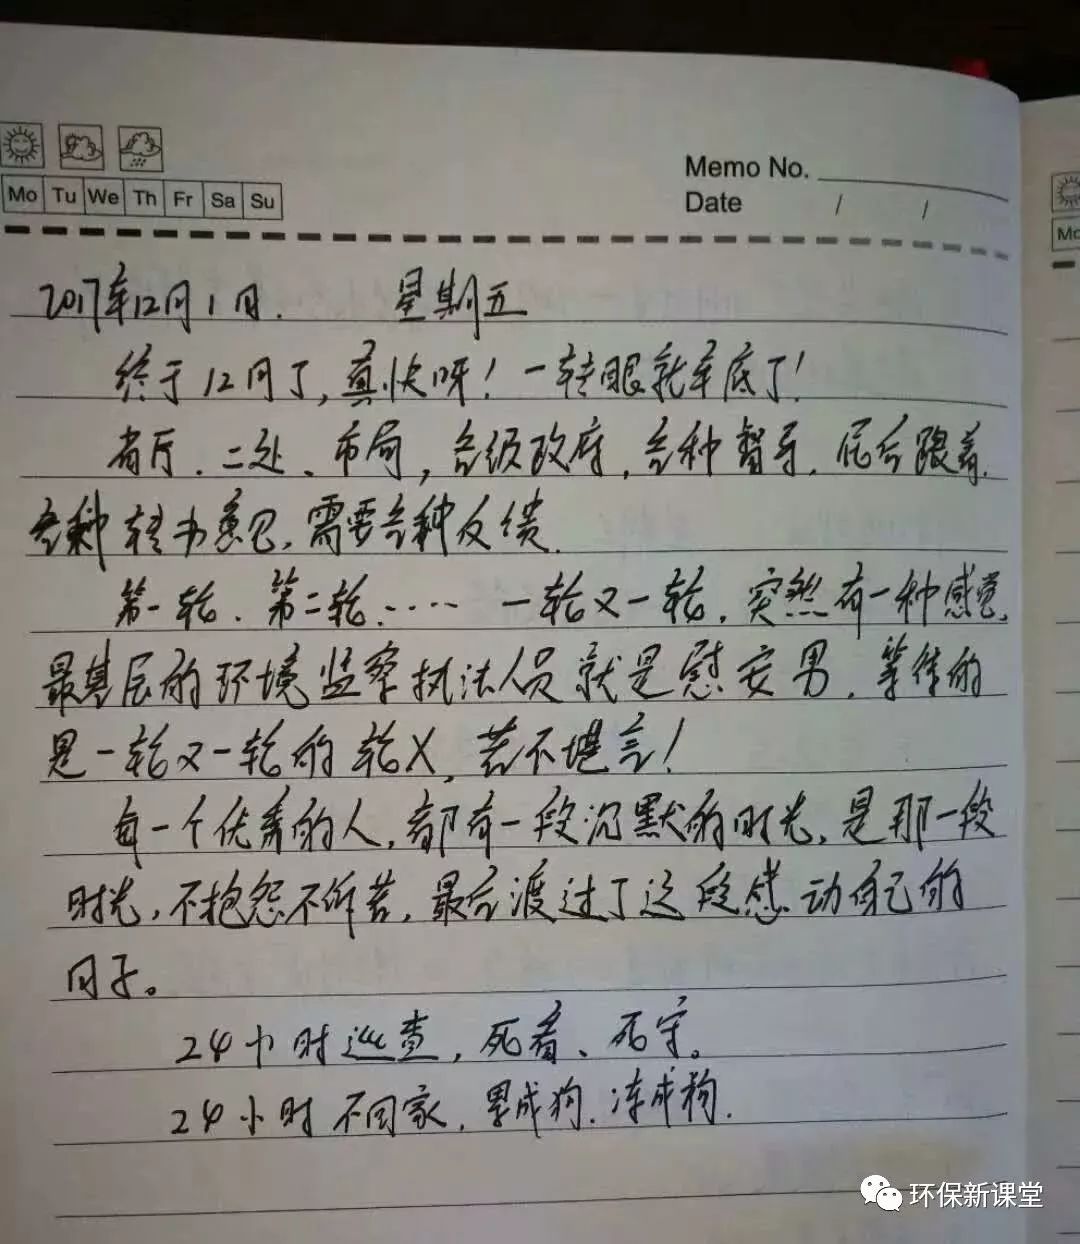 Mo Tu We Th Fr Sa Su
Memo No.
Date / /
Mo
2017年12月1日. 星期五
终于12月了,真快呀!一转眼就年底了!
省厅、二处、市局,各级政府,各种督导,屁后跟着
各种转办意见,需要各种反馈.
第一轮、第二轮····· 一轮又一轮,突然有一种感觉,
最基层的环境监察执法人员就是慰安男,等待的
是一轮又一轮的轮X,苦不堪言!
每一个优秀的人,都有一段沉默的时光,是那一段
时光,不抱怨不诉苦,最后渡过了这段感动自己的
日子。
24小时巡查,死看、死守。
24小时不回家,累成狗.冻成狗.
环保新课堂